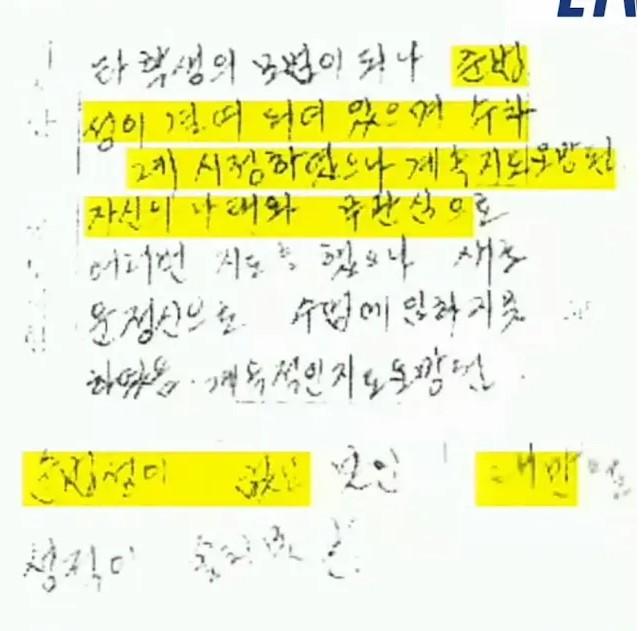 타 학생의 모범이 되나 준법
성이 결여 되어 있으며 수차
시정하였으나 계속지도요망됨
자신의 나태와 주관식으로
여러번 지도를 했으나 새로
운정신으로 수업에 임하지못
하였음. 계속적인지도요망됨.
준법성이 없고 태만
성적이